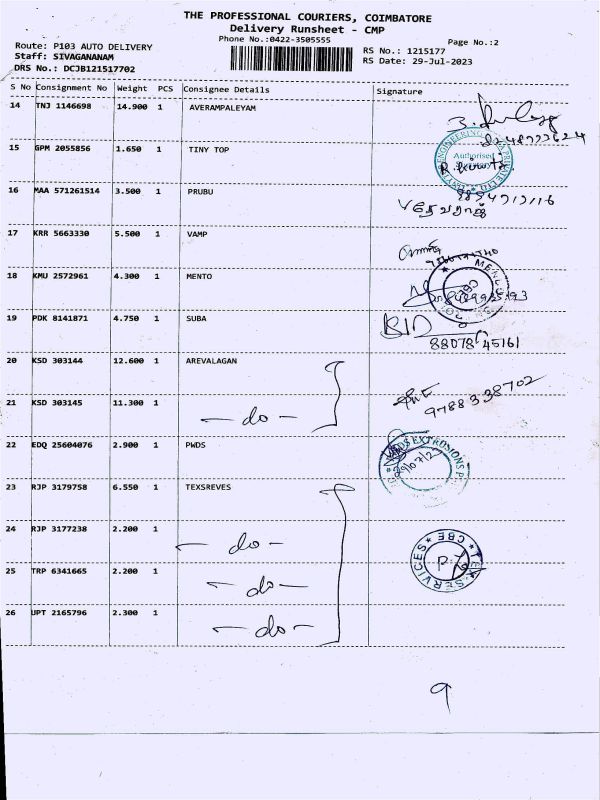 THE PROFESSIONAL COURIERS, COIMBATORE
Delivery Runsheet - CMP
Phone No.:0422-3505555
Page No.:2
Route: P103 AUTO DELIVERY
RS No.: 1215177
Staff: SIVAGANANAM
RS Date: 29-Jul-2023
DRS No.: DCJB121517702
S No Consignment No Weight PCS Consignee Details Signature
14 TNJ 1146698 14.900 1 AVERAMPALEYAM
15 GPM 2055856 1.650 1 TINY TOP
Authorised
16 MAA 571261514 3.500 1 PRUBU
17 KRR 5663330 5.500 1 VAMP
18 KMU 2572961 4.300 1 MENTO
19 PDK 8141871 4.750 1 SUBA
88078 45161
20 KSD 303144 12.600 1 AREVALAGAN
21 KSD 303145 11.300 1 - do -
9788338702
22 EDQ 25604076 2.900 1 PWDS
23 RJP 3179758 6.550 1 TEXSREVES
24 RJP 3177238 2.200 1 - do -
TEX SERVICES * CBE *
25 TRP 6341665 2.200 1 - do -
26 UPT 2165796 2.300 1 - do -
9